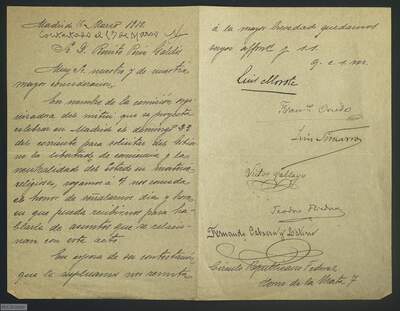 Madrid 15 Marzo 1908.
Contestada el 17 de Marzo
Sr. D. Benito Perez Galdós
Muy Sr. nuestro y de nuestra
mayor consideracion:
En nombre de la comisión orga-
nizadora del mitin que se proyecta
celebrar en Madrid el domingo 22
del corriente para solicitar del
la libertad de conciencia y la
neutralidad del Estado en materia
religiosa, rogamos á V. nos conceda
el honor de señalarnos día y hora
en que pueda recibirnos para ha-
blarle de asuntos que se relacio-
nan con este acto.
En espera de su contestación,
que le suplicamos nos remita
á la mayor brevedad quedamos
suyos affmos. y s. s.
q. e. s. m.
Luis Morote
Oviedo
Luis Simarro
Victor Gallego
Teodoro
Fernando
Circulo Republicano Federal
Horno de la Mata, 7